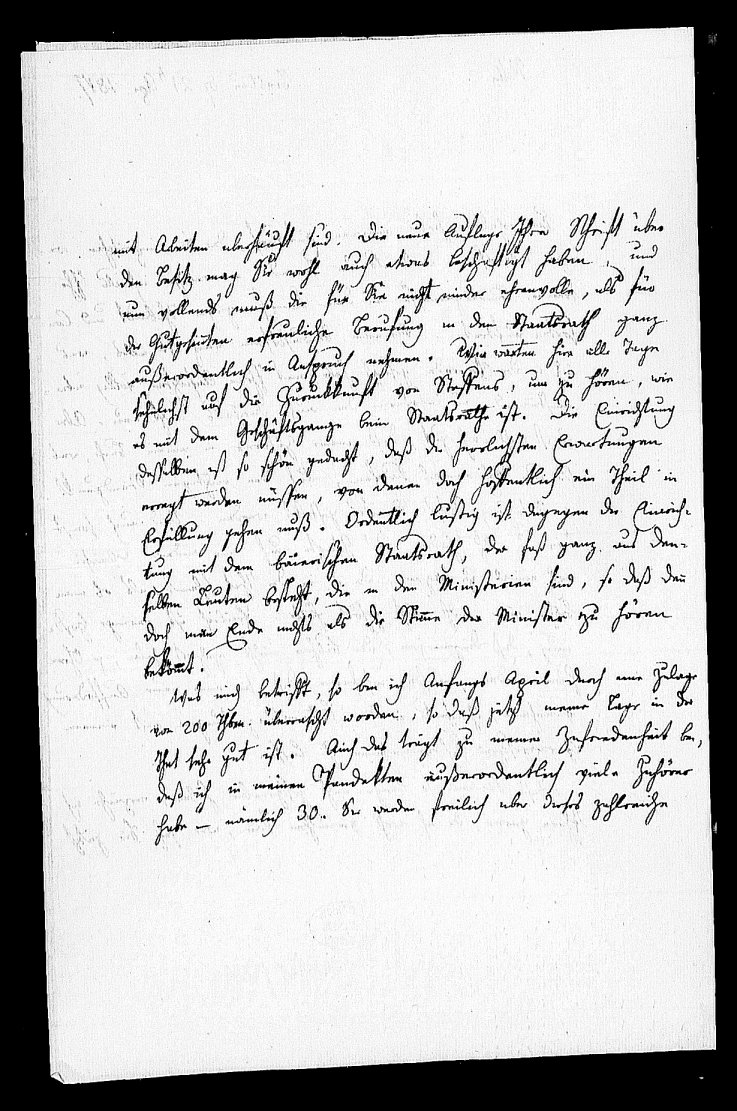 mit Arbeiten überhäuft sind. Die neue Auflage Ihrer Schrift über
den Besitz mag Sie wohl auch etwas beschäftigt haben, und
nun vollends muß die für Sie nicht minder ehrenvolle, als für
die Gutgesinnten erfreuliche Berufung in den Staatsrath ganz
außerordentlich in Anspruch nehmen. Wir warten hier alle Tage
sehnlichst auf die Zurückkunft von Steffens, um zu hören, wie
es mit dem Geschäftsgange beim Staatsrathe ist. Die Einrichtung
desselben ist so schön gedacht, daß die herrlichsten Erwartungen
erregt werden müssen, von denen doch hoffentlich ein Theil in
Erfüllung gehen muß. Ordentlich lustig ist dagegen die Einrich-
tung mit dem baierischen Staatsrath, der fast ganz aus den-
selben Leuten besteht, die in den Ministerien sind, so daß denn
doch am Ende nichts als die Stimme der Minister zu hören
bekömmt.
Was mich betrifft, so bin ich Anfangs April durch eine Zulage
von 200 Thlrn. überrascht worden, so daß jetzt meine Lage in der
That sehr gut ist. Auch das trägt zu meiner Zufriedenheit bei,
daß ich in meinen Pandekten außerordentlich viele Zuhörer
habe – nämlich 30. Sie werden freilich über dieses zahlreiche